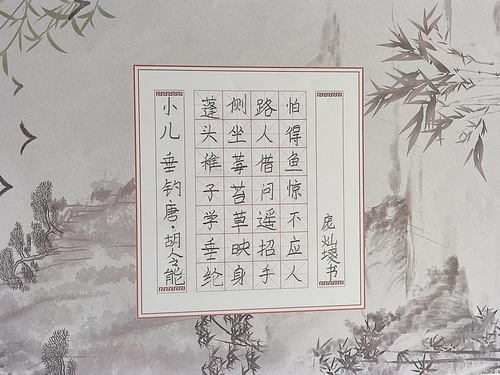 小儿垂钓 唐·胡令能
蓬头稚子学垂纶
侧坐莓苔草映身
路人借问遥招手
怕得鱼惊不应人
庞灿书